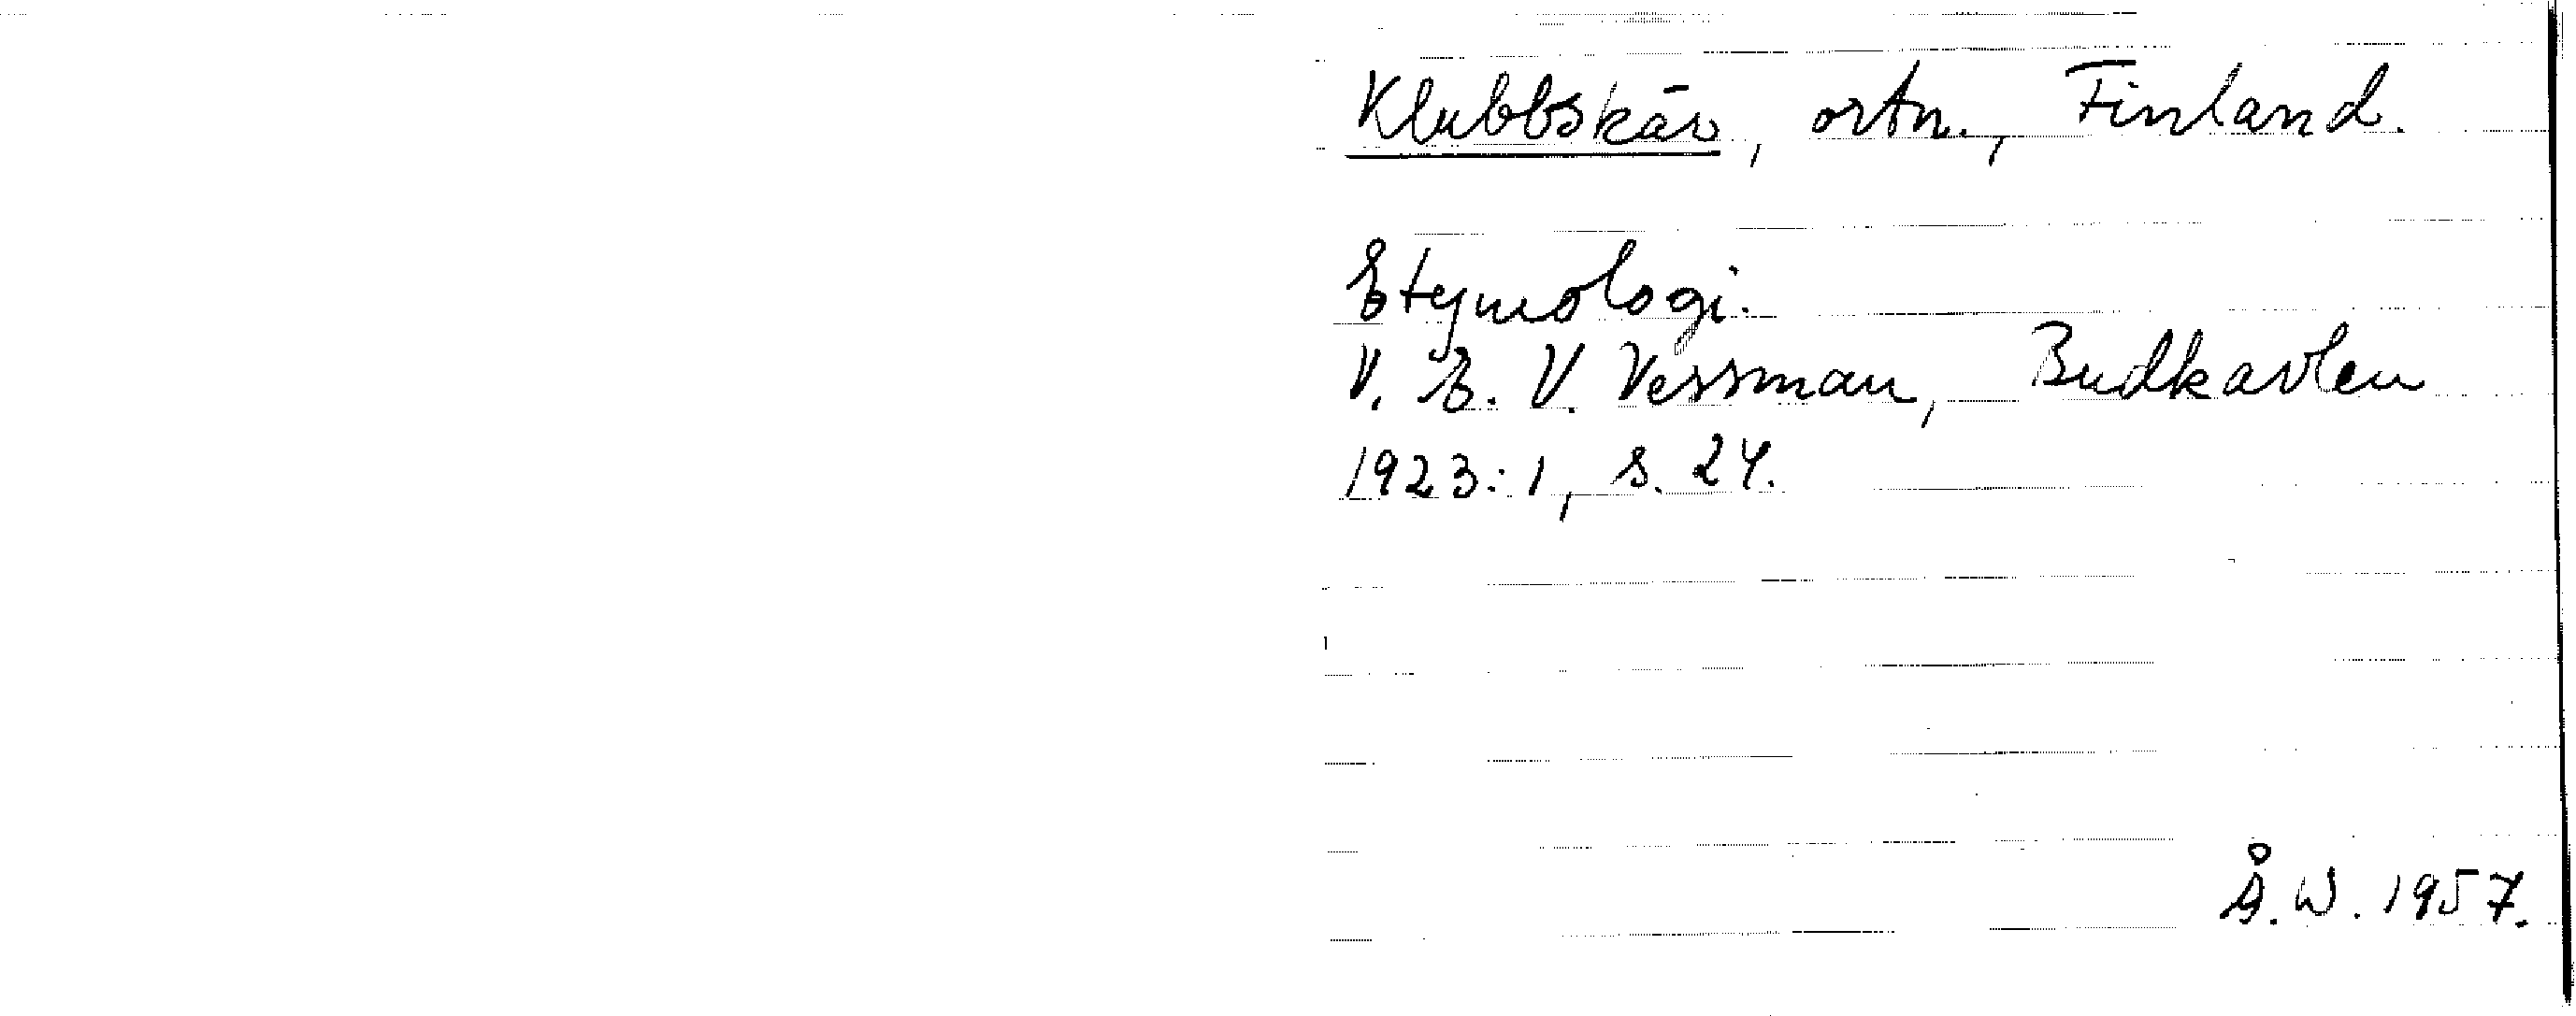 Klubbskär, ortn., Finland.
Etymologi.
V. E. V. Vessman, Budkavlen
1923:1, s. 24.
Å.W. 1957.